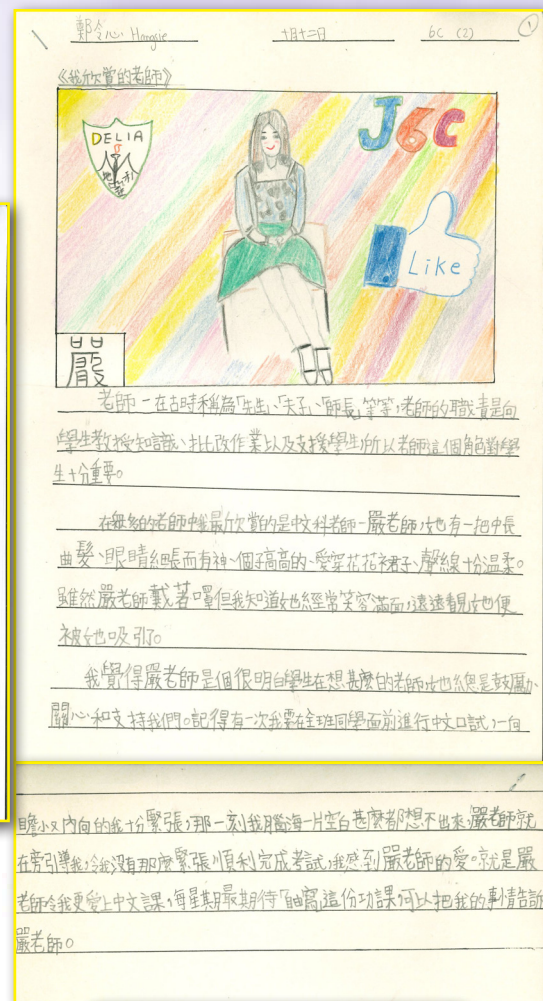 鄭令心 Hangsie 十月十二日 6C (2) ①
《我欣賞的老師》
DELIA
地利亞
J6C
Like
嚴
老師－在古時稱為「先生」、「夫子」、「師長」等等,老師的職責是向
學生教授知識、批改作業以及支援學生,所以老師這個角色對學
生十分重要。
在眾多的老師中,我最欣賞的是中文科老師－嚴老師,她有一把中長
曲髮、眼睛細長而有神、個子高高的、愛穿花花裙子、聲線十份溫柔。
雖然嚴老師戴著口罩但我知道她經常笑容滿面,遠遠看見她便
被她吸引了。
我覺得嚴老師是個很明白學生在想甚麼的老師,她總是鼓勵、
關心和支持我們。記得有一次我要在全班同學面前進行中文口試,一向
膽小又內向的我十分緊張,那一刻我腦海一片空白甚麼都想不出來,嚴老師就
在旁引導我,令我沒有那麼緊張,順利完成考試,我感到嚴老師的愛。就是嚴
老師令我更愛上中文課,每星期最期待「自由寫」這份功課,可以把我的事情告訴
嚴老師。